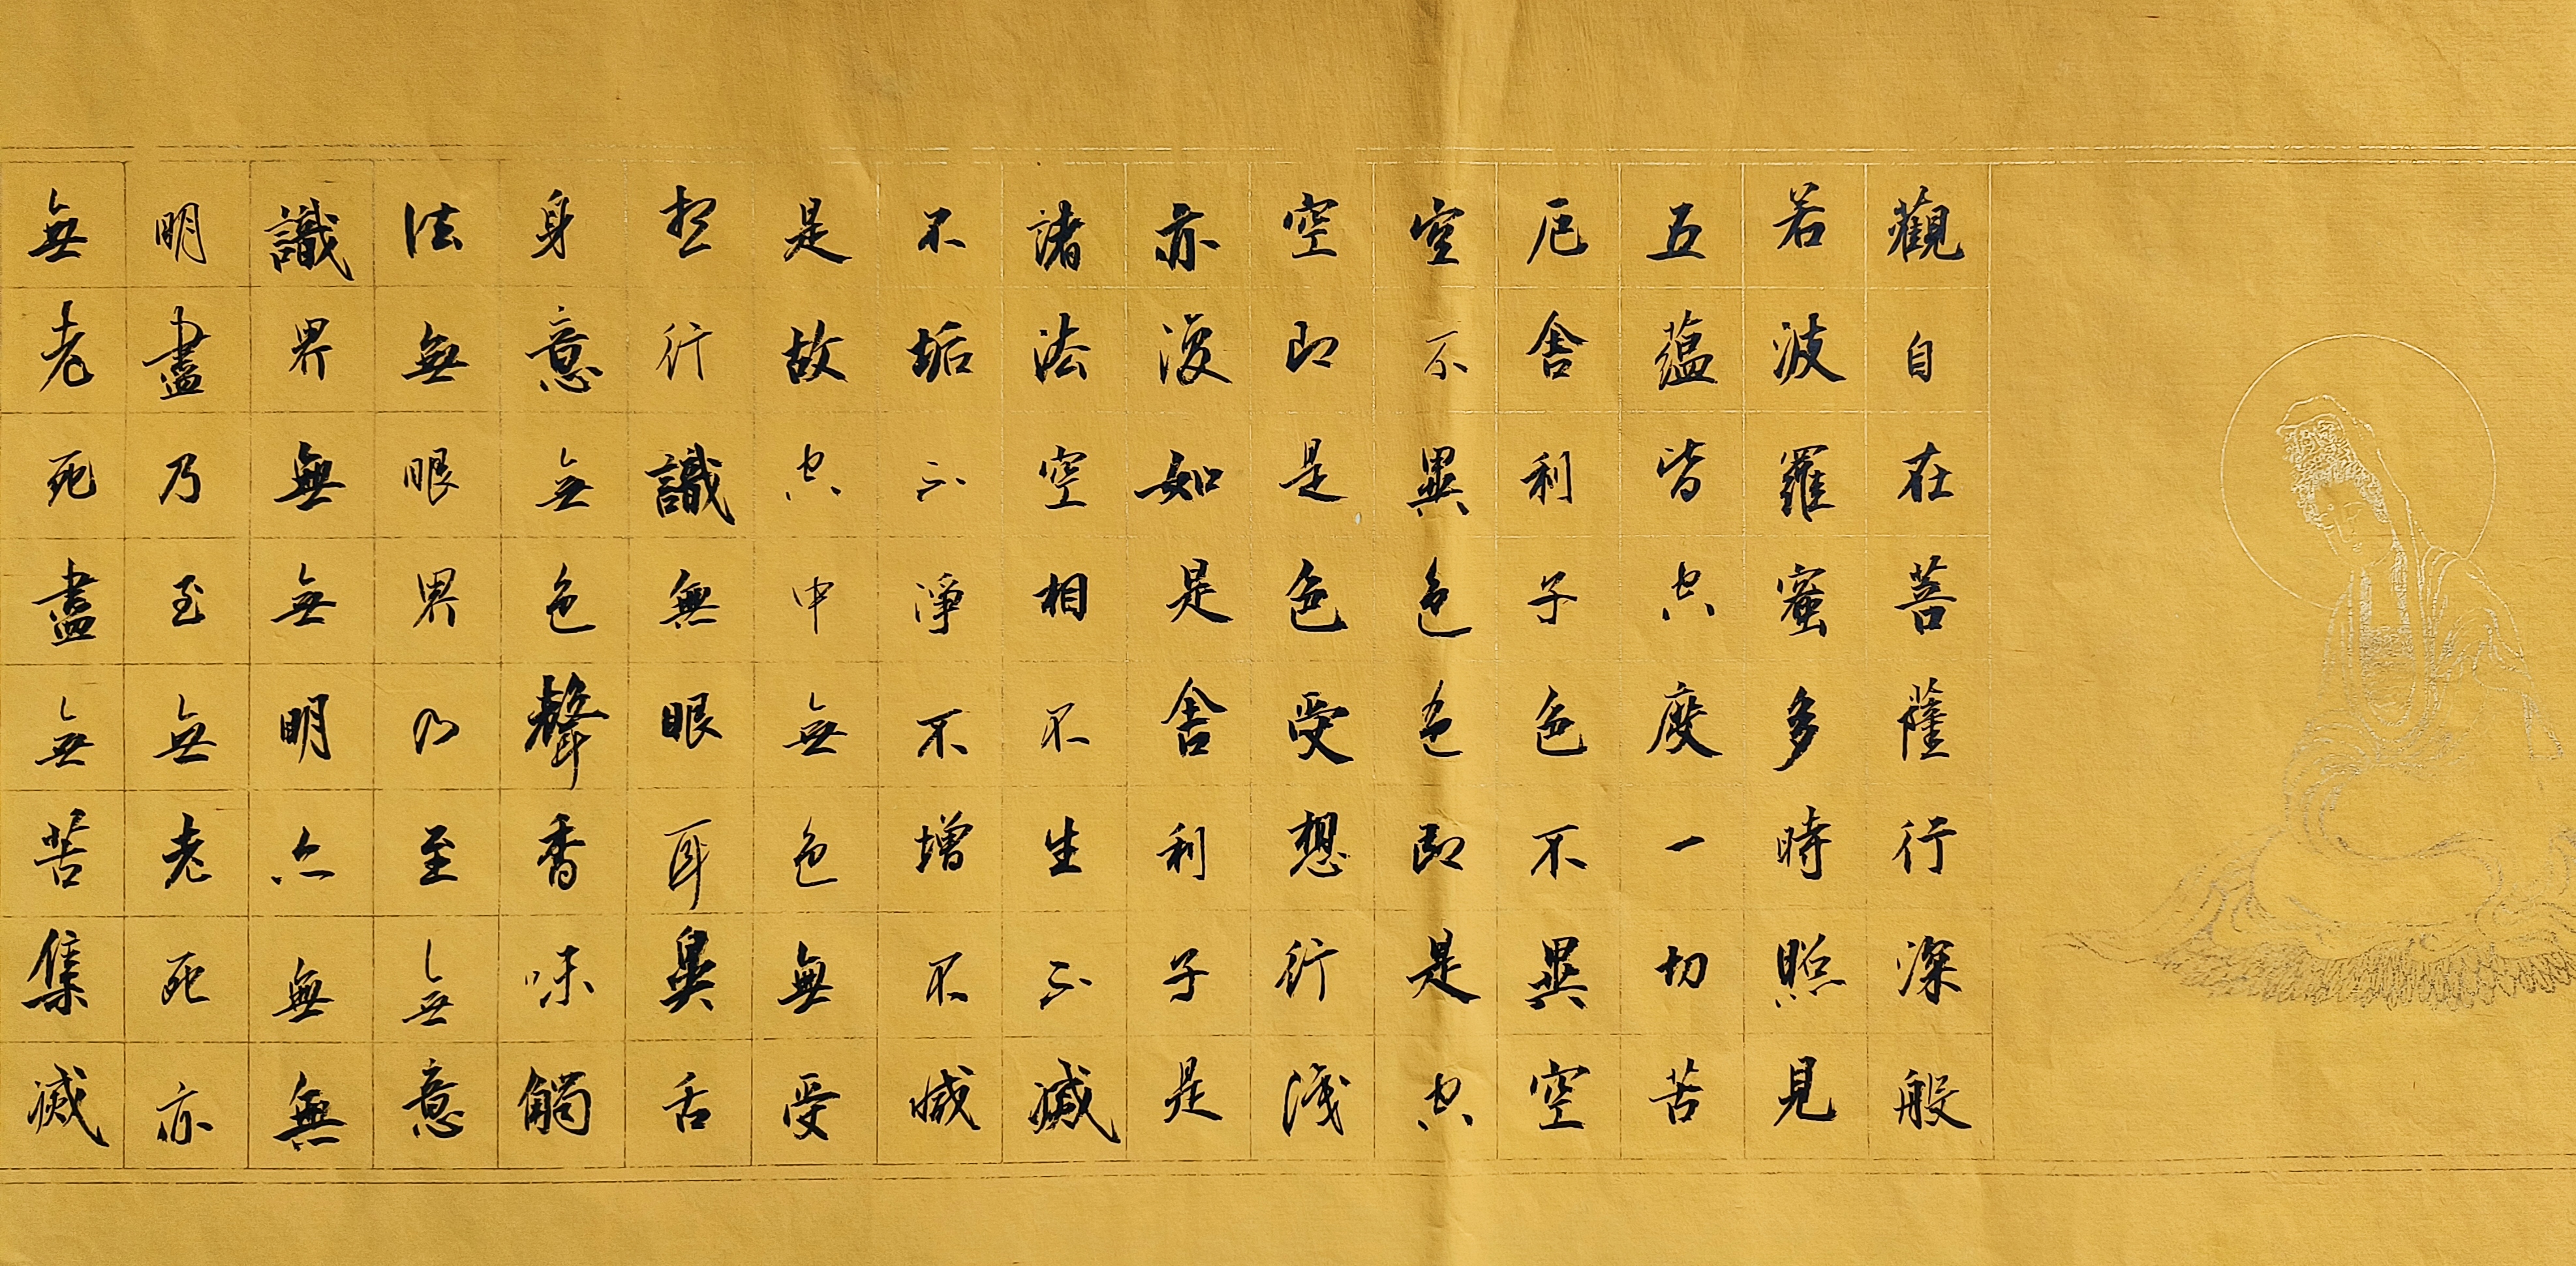 觀自在菩薩行深般
若波羅蜜多時照見
五蘊皆空度一切苦
厄舍利子色不異空
空不異色色即是空
空即是色受想行識
亦復如是舍利子是
諸法空相不生不滅
不垢不淨不增不減
是故空中無色無受
想行識無眼耳鼻舌
身意無色聲香味觸
法無眼界乃至無意
識界無無明亦無無
明盡乃至無老死亦
無老死盡無苦集滅